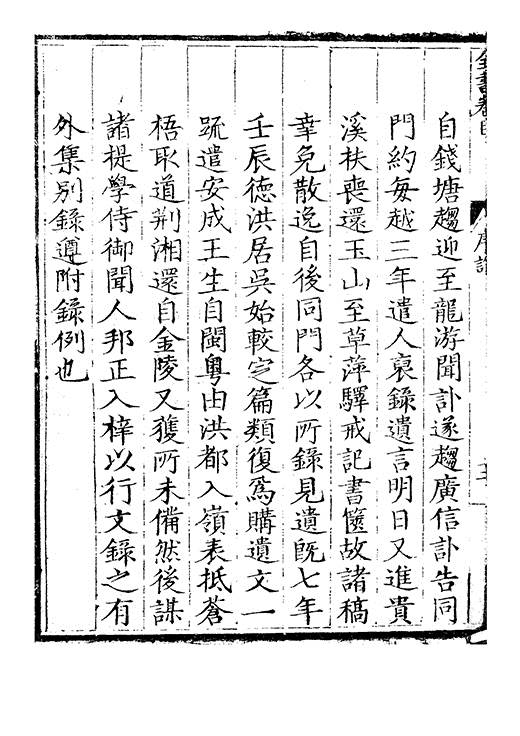 自錢塘趨迎至龍游聞訃遂趨廣信訃告同
門約每越三年遣人裒錄遺言明日又進貴
溪扶喪還玉山至草萍驛戒記書篋故諸稿
幸免散逸自後同門各以所錄見遺旣七年
壬辰德洪居吳始較定篇類復爲購遺文一
䟽遣安成王生自閩粵由洪都入嶺表抵蒼
梧取道荆湘還自金陵又獲所未備然後謀
諸提學侍御聞人邦正入梓以行文錄之有
外集別錄遵附錄例也